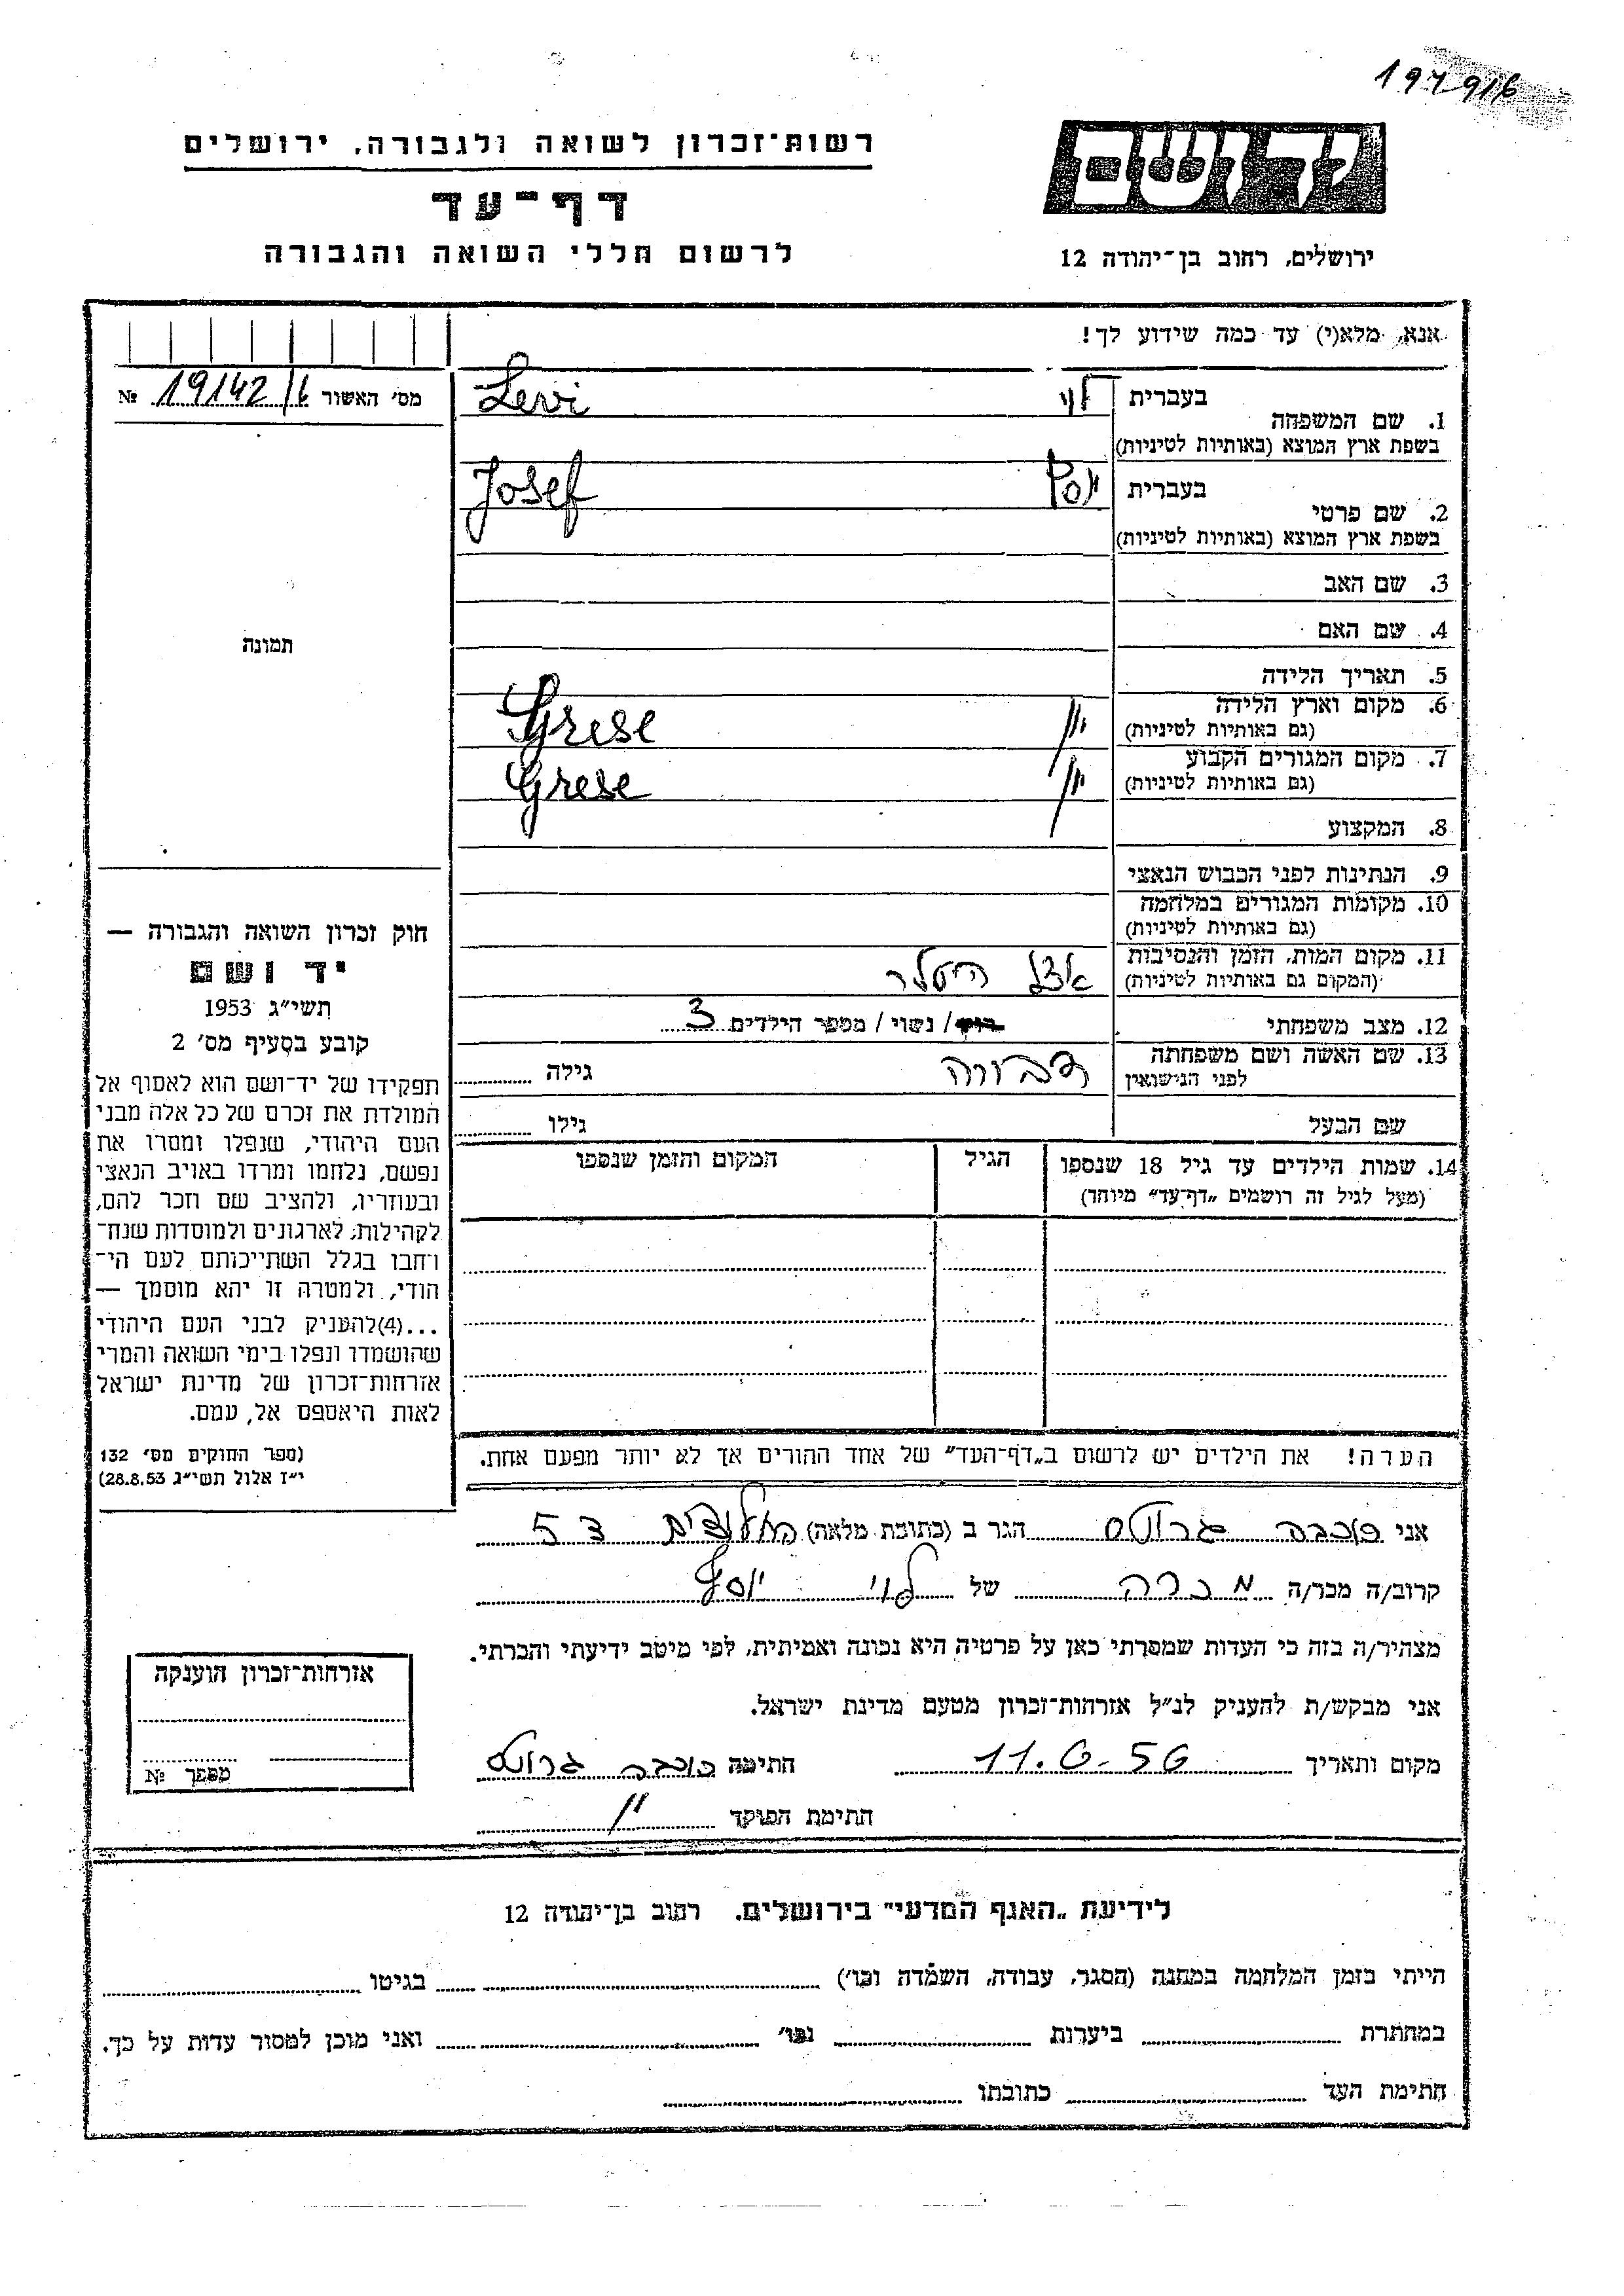 197916
רשות־זכרון לשואה ולגבורה, ירושלים
דף־עד
לרשום חללי השואה והגבורה
יד ושם
ירושלים, רחוב בן־יהודה 12
אנא, מלא(י) עד כמה שידוע לך!
מס׳ האשור 19142/6 №
1. שם המשפחה
בעברית לוי Levi
בשפת ארץ המוצא (באותיות לטיניות)
2. שם פרטי
בעברית יוסף Josef
בשפת ארץ המוצא (באותיות לטיניות)
3. שם האב
4. שם האם
תמונה
5. תאריך הלידה
6. מקום וארץ הלידה יון Grese
(גם באותיות לטיניות)
7. מקום המגורים הקבוע יון Grese
(גם באותיות לטיניות)
8. המקצוע
9. הנתינות לפני הכבוש הנאצי
10. מקומות המגורים במלחמה
(גם באותיות לטיניות)
11. מקום המות, הזמן והנסיבות אצל היטלר
(המקום גם באותיות לטיניות)
12. מצב משפחתי רוק / נשוי / מספר הילדים 3
13. שם האשה ושם משפחתה דבורה גילה
לפני הנישואין
שם הבעל גילו
14. שמות הילדים עד גיל 18 שנספו הגיל המקום והזמן שנספו
(מעל לגיל זה רושמים „דף־עד״ מיוחד)
הערה! את הילדים יש לרשום ב„דף־העד״ של אחד ההורים אך לא יותר מפעם אחת.
חוק זכרון השואה והגבורה —
יד ושם
תשי״ג 1953
קובע בסעיף מס׳ 2
תפקידו של יד־ושם הוא לאסוף אל
המולדת את זכרם של כל אלה מבני
העם היהודי, שנפלו ומסרו את
נפשם, נלחמו ומרדו באויב הנאצי
ובעוזריו, ולהציב שם וזכר להם,
לקהילות, לארגונים ולמוסדות שנח־
רחבו בגלל השתייכותם לעם הי־
הודי, ולמטרה זו יהא מוסמך —
...(4) להעניק לבני העם היהודי
שהושמדו ונפלו בימי השואה והמרי
אזרחות־זכרון של מדינת ישראל
לאות היאספם אל עמם.
(ספר החוקים מס׳ 132
י״ז אלול תשי״ג 28.8.53)
אני כוכבה הגר ב (כתובת מלאה)
קרוב/ה מכר/ה מכרה של לוי יוסף
מצהיר/ה בזה כי העדות שמסרתי כאן על פרטיה היא נכונה ואמיתית, לפי מיטב ידיעתי והכרתי.
אני מבקש/ת להעניק לנ״ל אזרחות־זכרון מטעם מדינת ישראל.
מקום ותאריך 11.6.56 חתימה כוכבה
חתימת הפוקד
אזרחות־זכרון הוענקה
מספר №
לידיעת „האגף המדעי״ בירושלים, רחוב בן־יהודה 12
הייתי בזמן המלחמה במחנה (הסגר, עבודה, השמדה וכו׳) בגיטו
במחתרת ביערות וכו׳ ואני מוכן למסור עדות על כך.
חתימת העד כתובתו